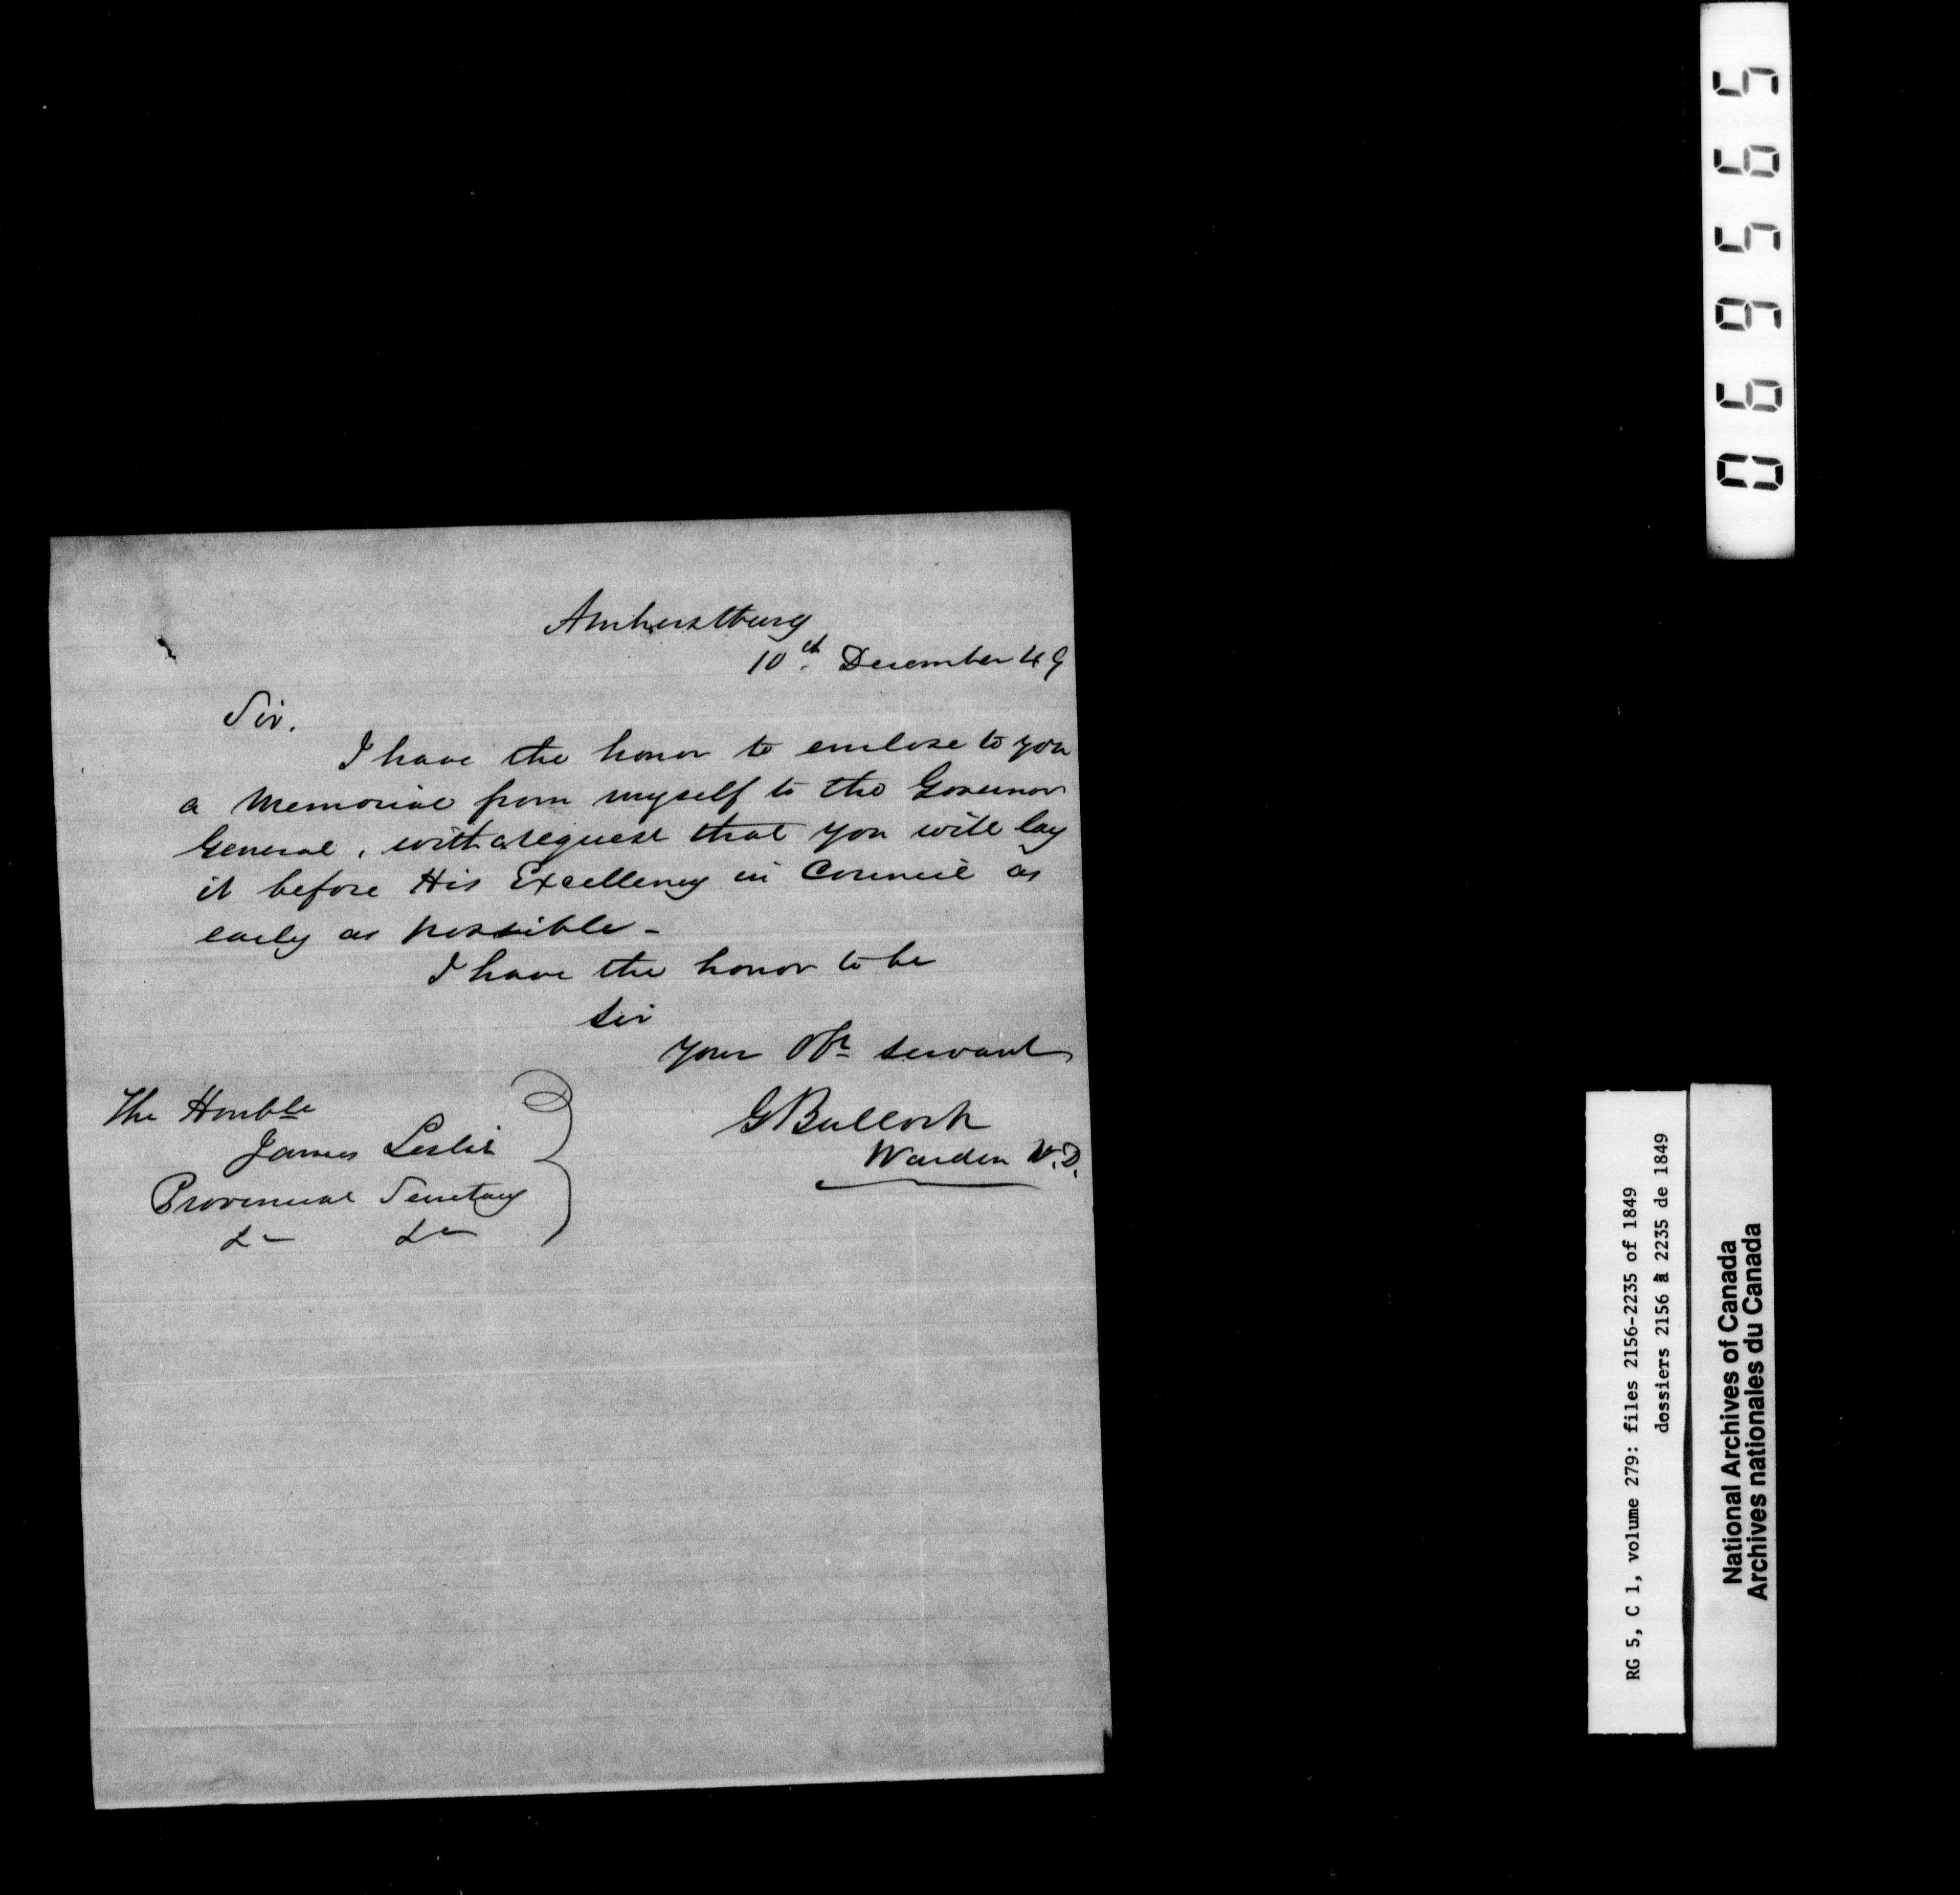 Amherstburg
10th December 49
Sir.
I have the honor to enclose to you
a Memorial from myself to the Governor
General, with a request that you will lay
it before His Excellency in Council as
early as possible -
I have the honor to be
Sir
your Obt servant
G Bullock
Warden W.D.
The Honble
James Leslie
Provincial Secretary
&c &c
069565
RG 5, C 1, volume 279: files 2156-2235 of 1849
dossiers 2156 à 2235 de 1849
National Archives of Canada
Archives nationales du Canada